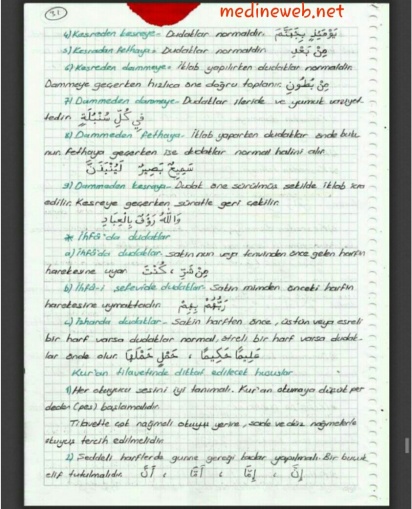 31
medineweb.net
4) Kesreden kesreye- Dudaklar normaldir. يَوْمَئِذٍ بِجَهَنَّمَ
5) Kesreden fethaya- Dudaklar normaldir. مِنْ بَعْدِ
6) Kesreden dammeye- İklab yapılırken dudaklar normaldir.
Dammeye geçerken hızlıca öne doğru toplanır. مِنْ بُطُونِ
7) Dammeden dammeye- Dudaklar ileride ve yumuk vaziyet-
tedir. فِي كُلِّ سُنْبُلَةٍ
8) Dammeden fethaya- İklab yaparken dudaklar önde bulu-
nur. Fethaya geçerken ise dudaklar normal halini alır.
سَمِيعٌ بَصِيرٌ لَيُنْبَذَنَّ
9) Dammeden kesraya- Dudak öne sürülmüş şekilde iklab icra
edilir. Kesreye geçerken süratle geri çekilir.
وَاللّٰهُ رَؤُفٌ بِالْعِبَادِ
* İhfâ'da dudaklar
a) İhfâ'da dudaklar sakin nun veya tenvinden önce gelen harfin
harekesine uyar. مِنْ شَرِّ ، كُنْتُ
b) İhfâ-i şefevide dudaklar sakin mimden önceki harfin
harekesine uymaktadır. رَبَّهُمْ بِهِمْ
c) İzharda dudaklar- Sakin harften önce, üstün veya esreli
bir harf varsa dudaklar normal, ötreli bir harf varsa dudak-
lar önde olur. عَلِيمًا حَكِيمًا ، حَمْلٍ حَمْلَهَا
Kur'an tilavetinde dikkat edilecek hususlar
1) Her okuyucu sesini iyi tanımalı. Kur'an okumaya düşük per-
deden (pes) başlamalıdır.
Tilavette çok nağmeli okuyuş yerine, sade ve düz nağmelerle
okuyuş tercih edilmelidir.
2) Şeddeli harflerde gunne gereği kadar yapılmalı. Bir buçuk
elif tutulmalıdır. إِنَّ ، إِمَّا ، أَمَّا ، أَنَّ